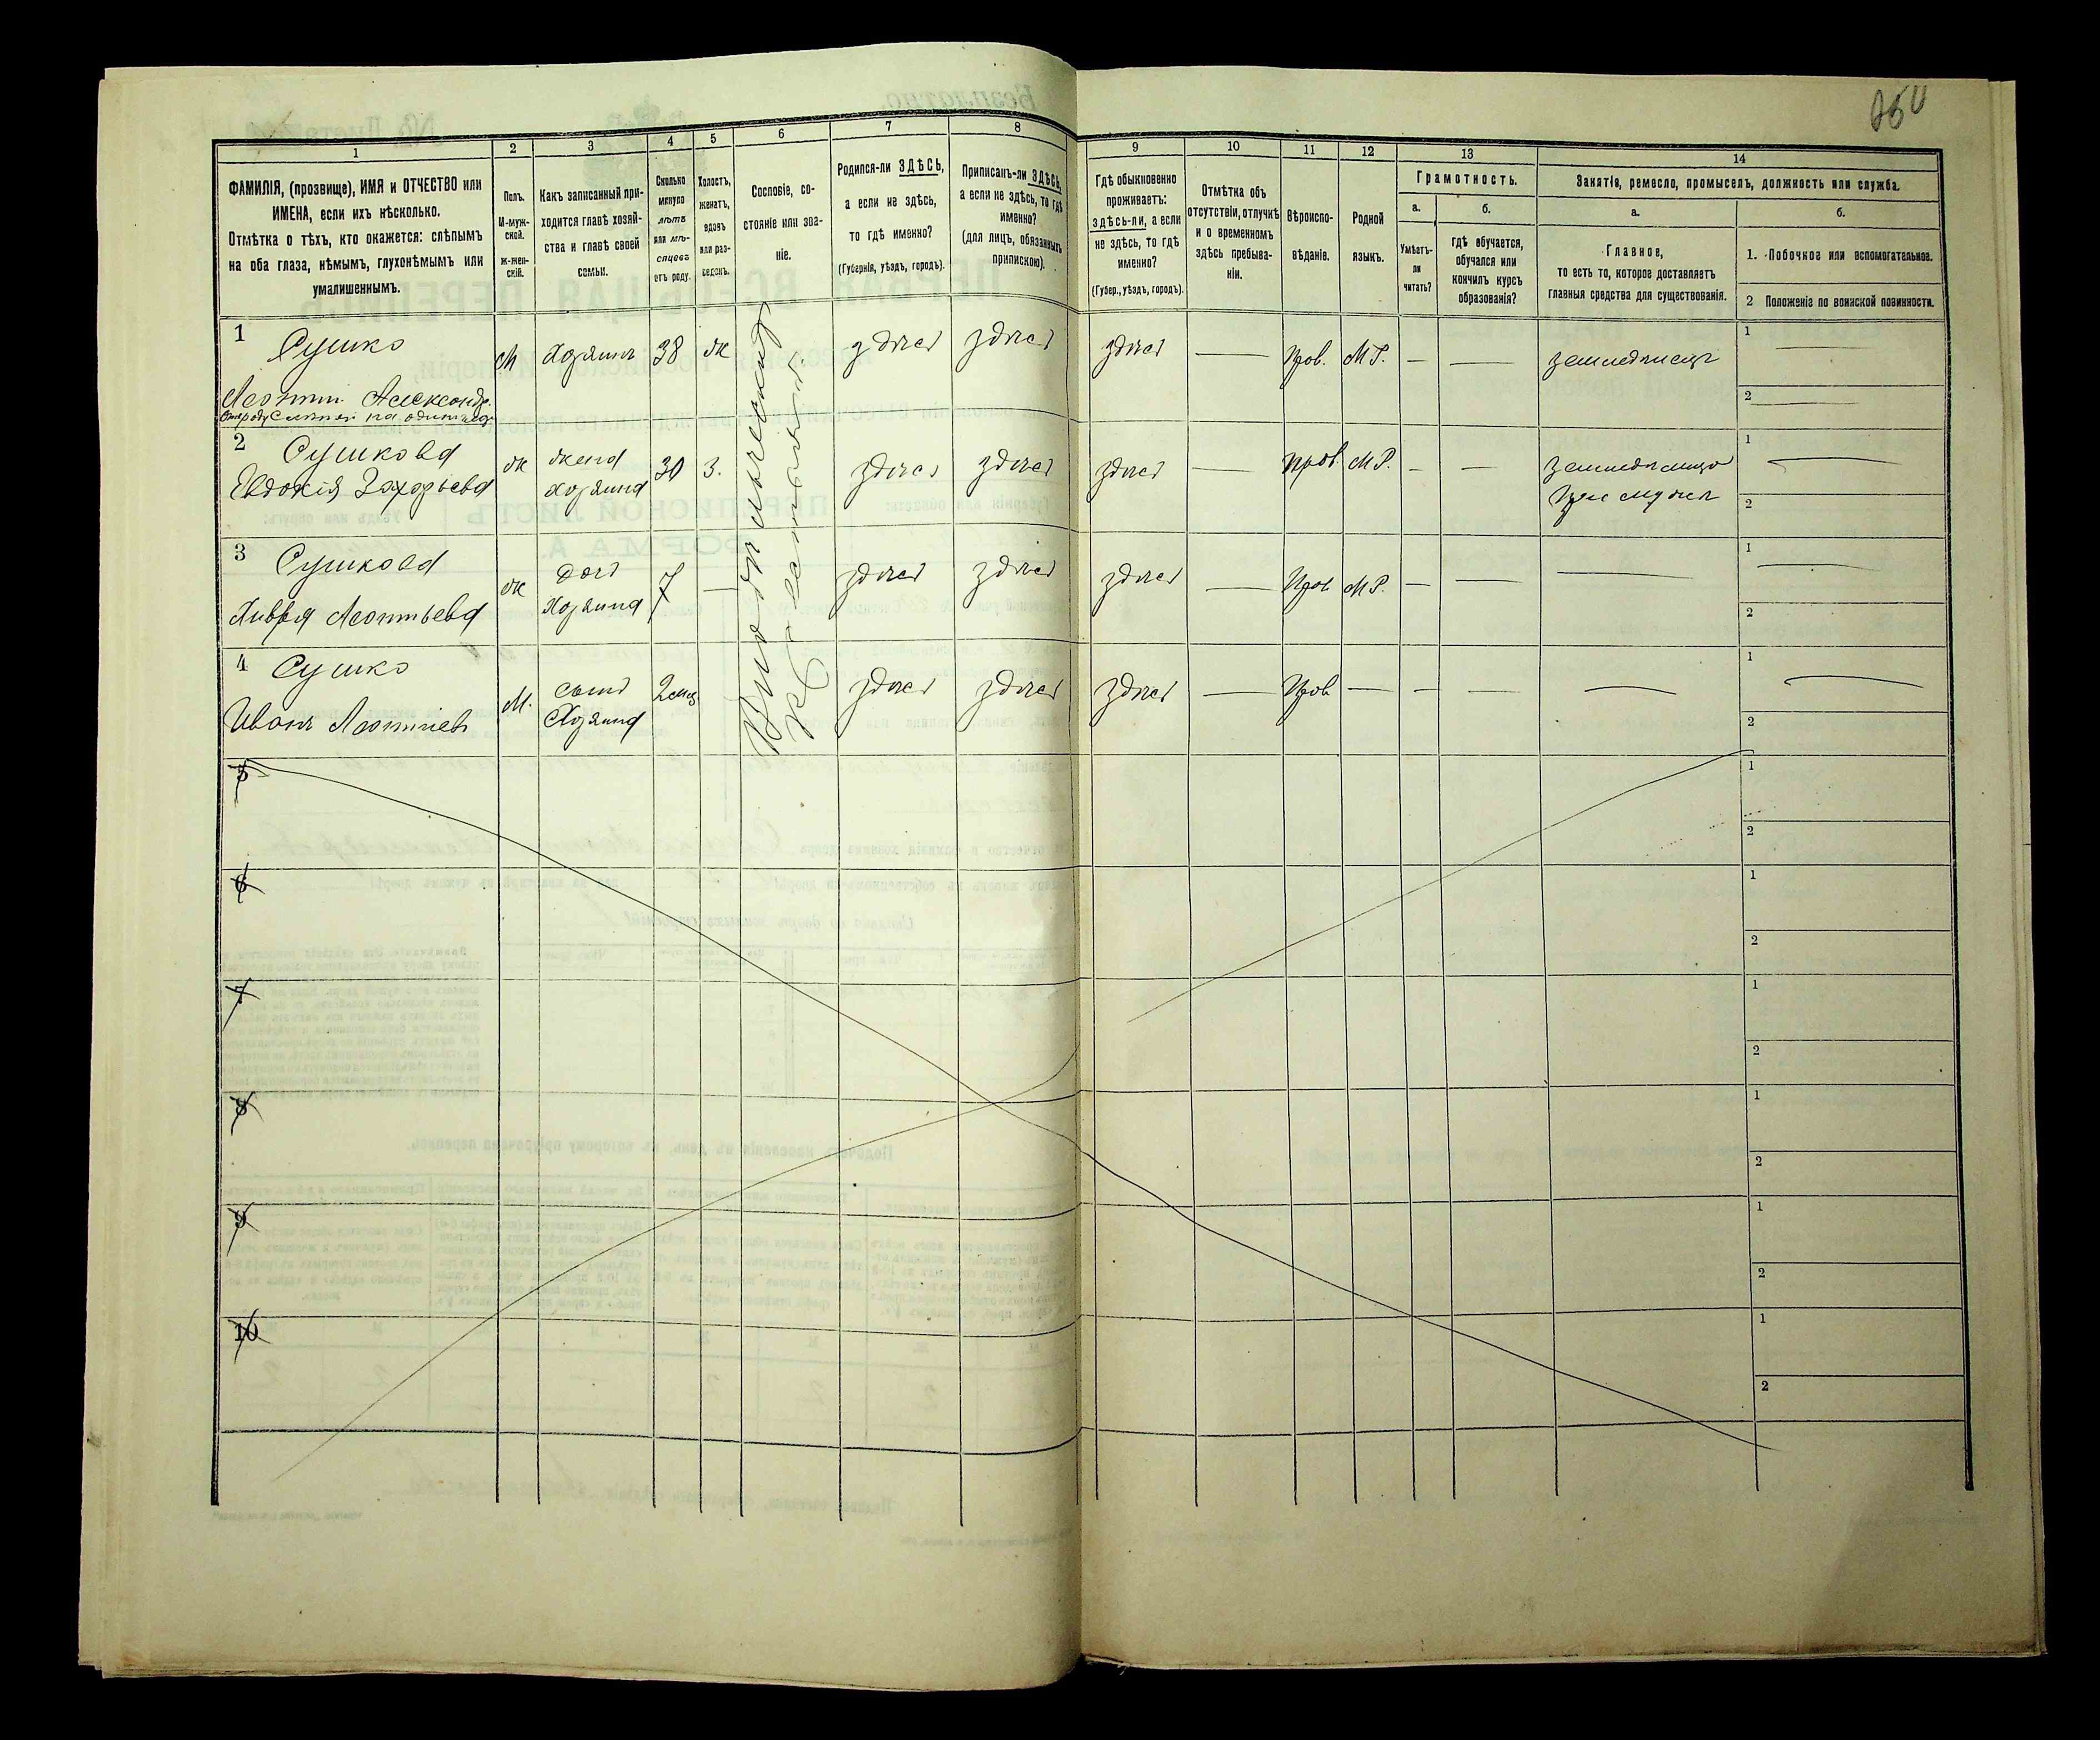 250
1
2
3
4
5
6
7
8
9
10
11
12
13
14
ФАМИЛІЯ, (прозвище), ИМЯ и ОТЧЕСТВО или
ИМЕНА, если ихъ нѣсколько.
Отмѣтка о тѣхъ, кто окажется: слѣпымъ
на оба глаза, нѣмымъ, глухонѣмымъ или
умалишеннымъ.
Полъ.
М-муж-
ской.
Ж-жен-
скій.
Какъ записанный при-
ходится главѣ хозяй-
ства и главѣ своей
семьи.
Сколько
минуло
лѣтъ
или мѣ-
сяцевъ
отъ роду.
Холостъ,
женатъ,
вдовъ
или раз-
веденъ.
Сословіе, со-
стояніе или зва-
ніе.
Родился-ли ЗДѢСЬ,
а если не здѣсь,
то гдѣ именно?
(Губернія, уѣздъ, городъ).
Приписанъ-ли ЗДѢСЬ,
а если не здѣсь, то гдѣ
именно?
(для лицъ, обязанныхъ
припискою).
Гдѣ обыкновенно
проживаетъ:
здѣсь-ли, а если
не здѣсь, то гдѣ
именно?
(Губер., уѣздъ, городъ).
Отмѣтка объ
отсутствіи, отлучкѣ
и о временномъ
здѣсь пребыва-
ніи.
Вѣроиспо-
вѣданіе.
Родной
языкъ.
Грамотность.
а.
б.
Умѣетъ-
ли
читать?
гдѣ обучается,
обучался или
кончилъ курсъ
образованія?
Занятіе, ремесло, промыселъ, должность или служба.
а.
б.
Главное,
то есть то, которое доставляетъ
главныя средства для существованія.
1. Побочное или вспомогательное.
2 Положеніе по воинской повинности.
1 Сушко
Леонтий Александр.
М Хозяинъ 38 ж здѣсь здѣсь здѣсь — Прав. М.Р. — — земледѣлецъ
1 —
2 —
2 Сушкова
Евдокія Захарьева
ж жена
хозяина
30 З. здѣсь здѣсь здѣсь — Прав. М.Р. — —
земледѣлица
при мужѣ
1 —
2
3 Сушкова
Хивря Леонтьева
ж дочь
Хозяина
7 — здѣсь здѣсь здѣсь — Прав М.Р. — — —
1 —
2
4 Сушко
Иванъ Леонтіевъ
М. сынъ
Хозяина
2 мѣс здѣсь здѣсь здѣсь — Прав — — — —
1 —
2
5
1
2
6
1
2
7
1
2
8
1
2
9
1
2
10
1
2